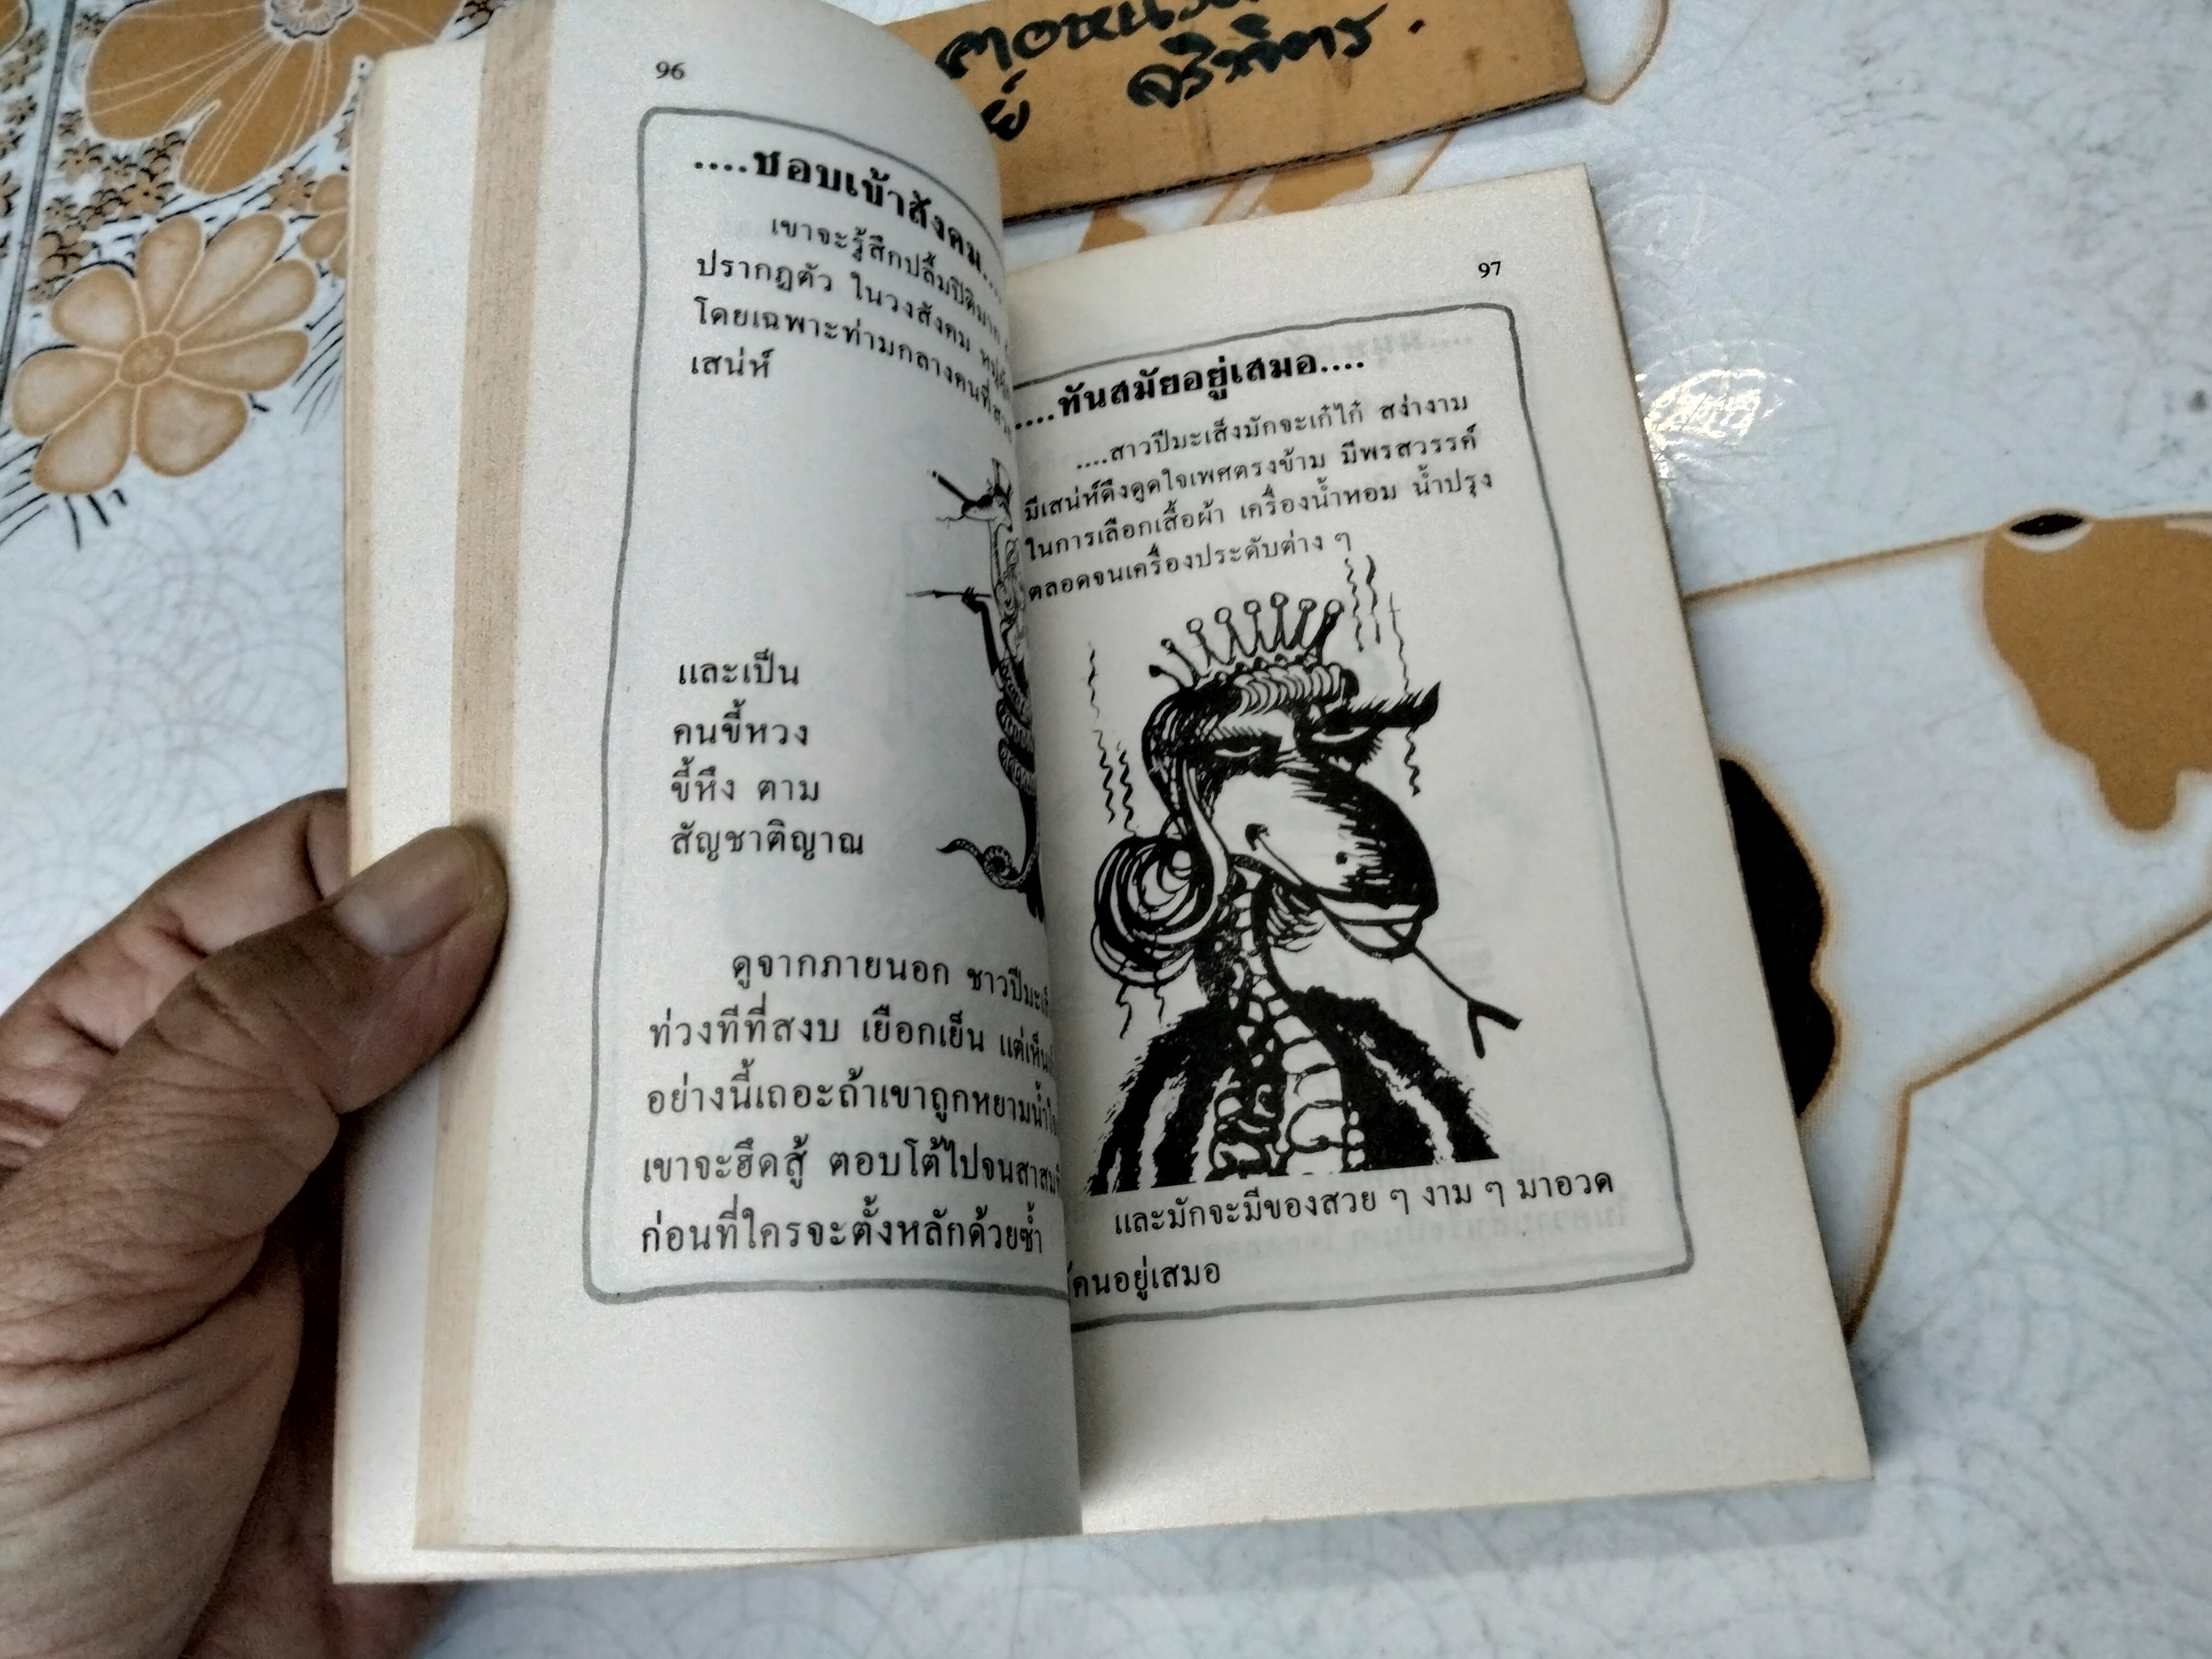 96
....ชอบเข้าสังคม....
เขาจะรู้สึกปลื้มปิติมาก
ปรากฏตัว ในวงสังคม
โดยเฉพาะท่ามกลางคนที่
เสน่ห์
และเป็น
คนขี้หวง
ขี้หึง ตาม
สัญชาติญาณ
ดูจากภายนอก
ท่วงทีที่สงบ เยือกเย็น
อย่างนี้เถอะถ้าเขาถูกหยาม
เขาจะฮึดสู้ ตอบโต้ไปจน
ก่อนที่ใครจะตั้งหลักด้วยซ้ำ
97
....ทันสมัยอยู่เสมอ....
....สาวปีมะเส็งมักจะเก๋ไก๋ สง่างาม
มีเสน่ห์ดึงดูดใจเพศตรงข้าม มีพรสวรรค์
ในการเลือกเสื้อผ้า เครื่องน้ำหอม น้ำปรุง
ตลอดจนเครื่องประดับต่าง ๆ
และมักจะมีของสวย ๆ งาม ๆ มาอวด
คนอยู่เสมอ